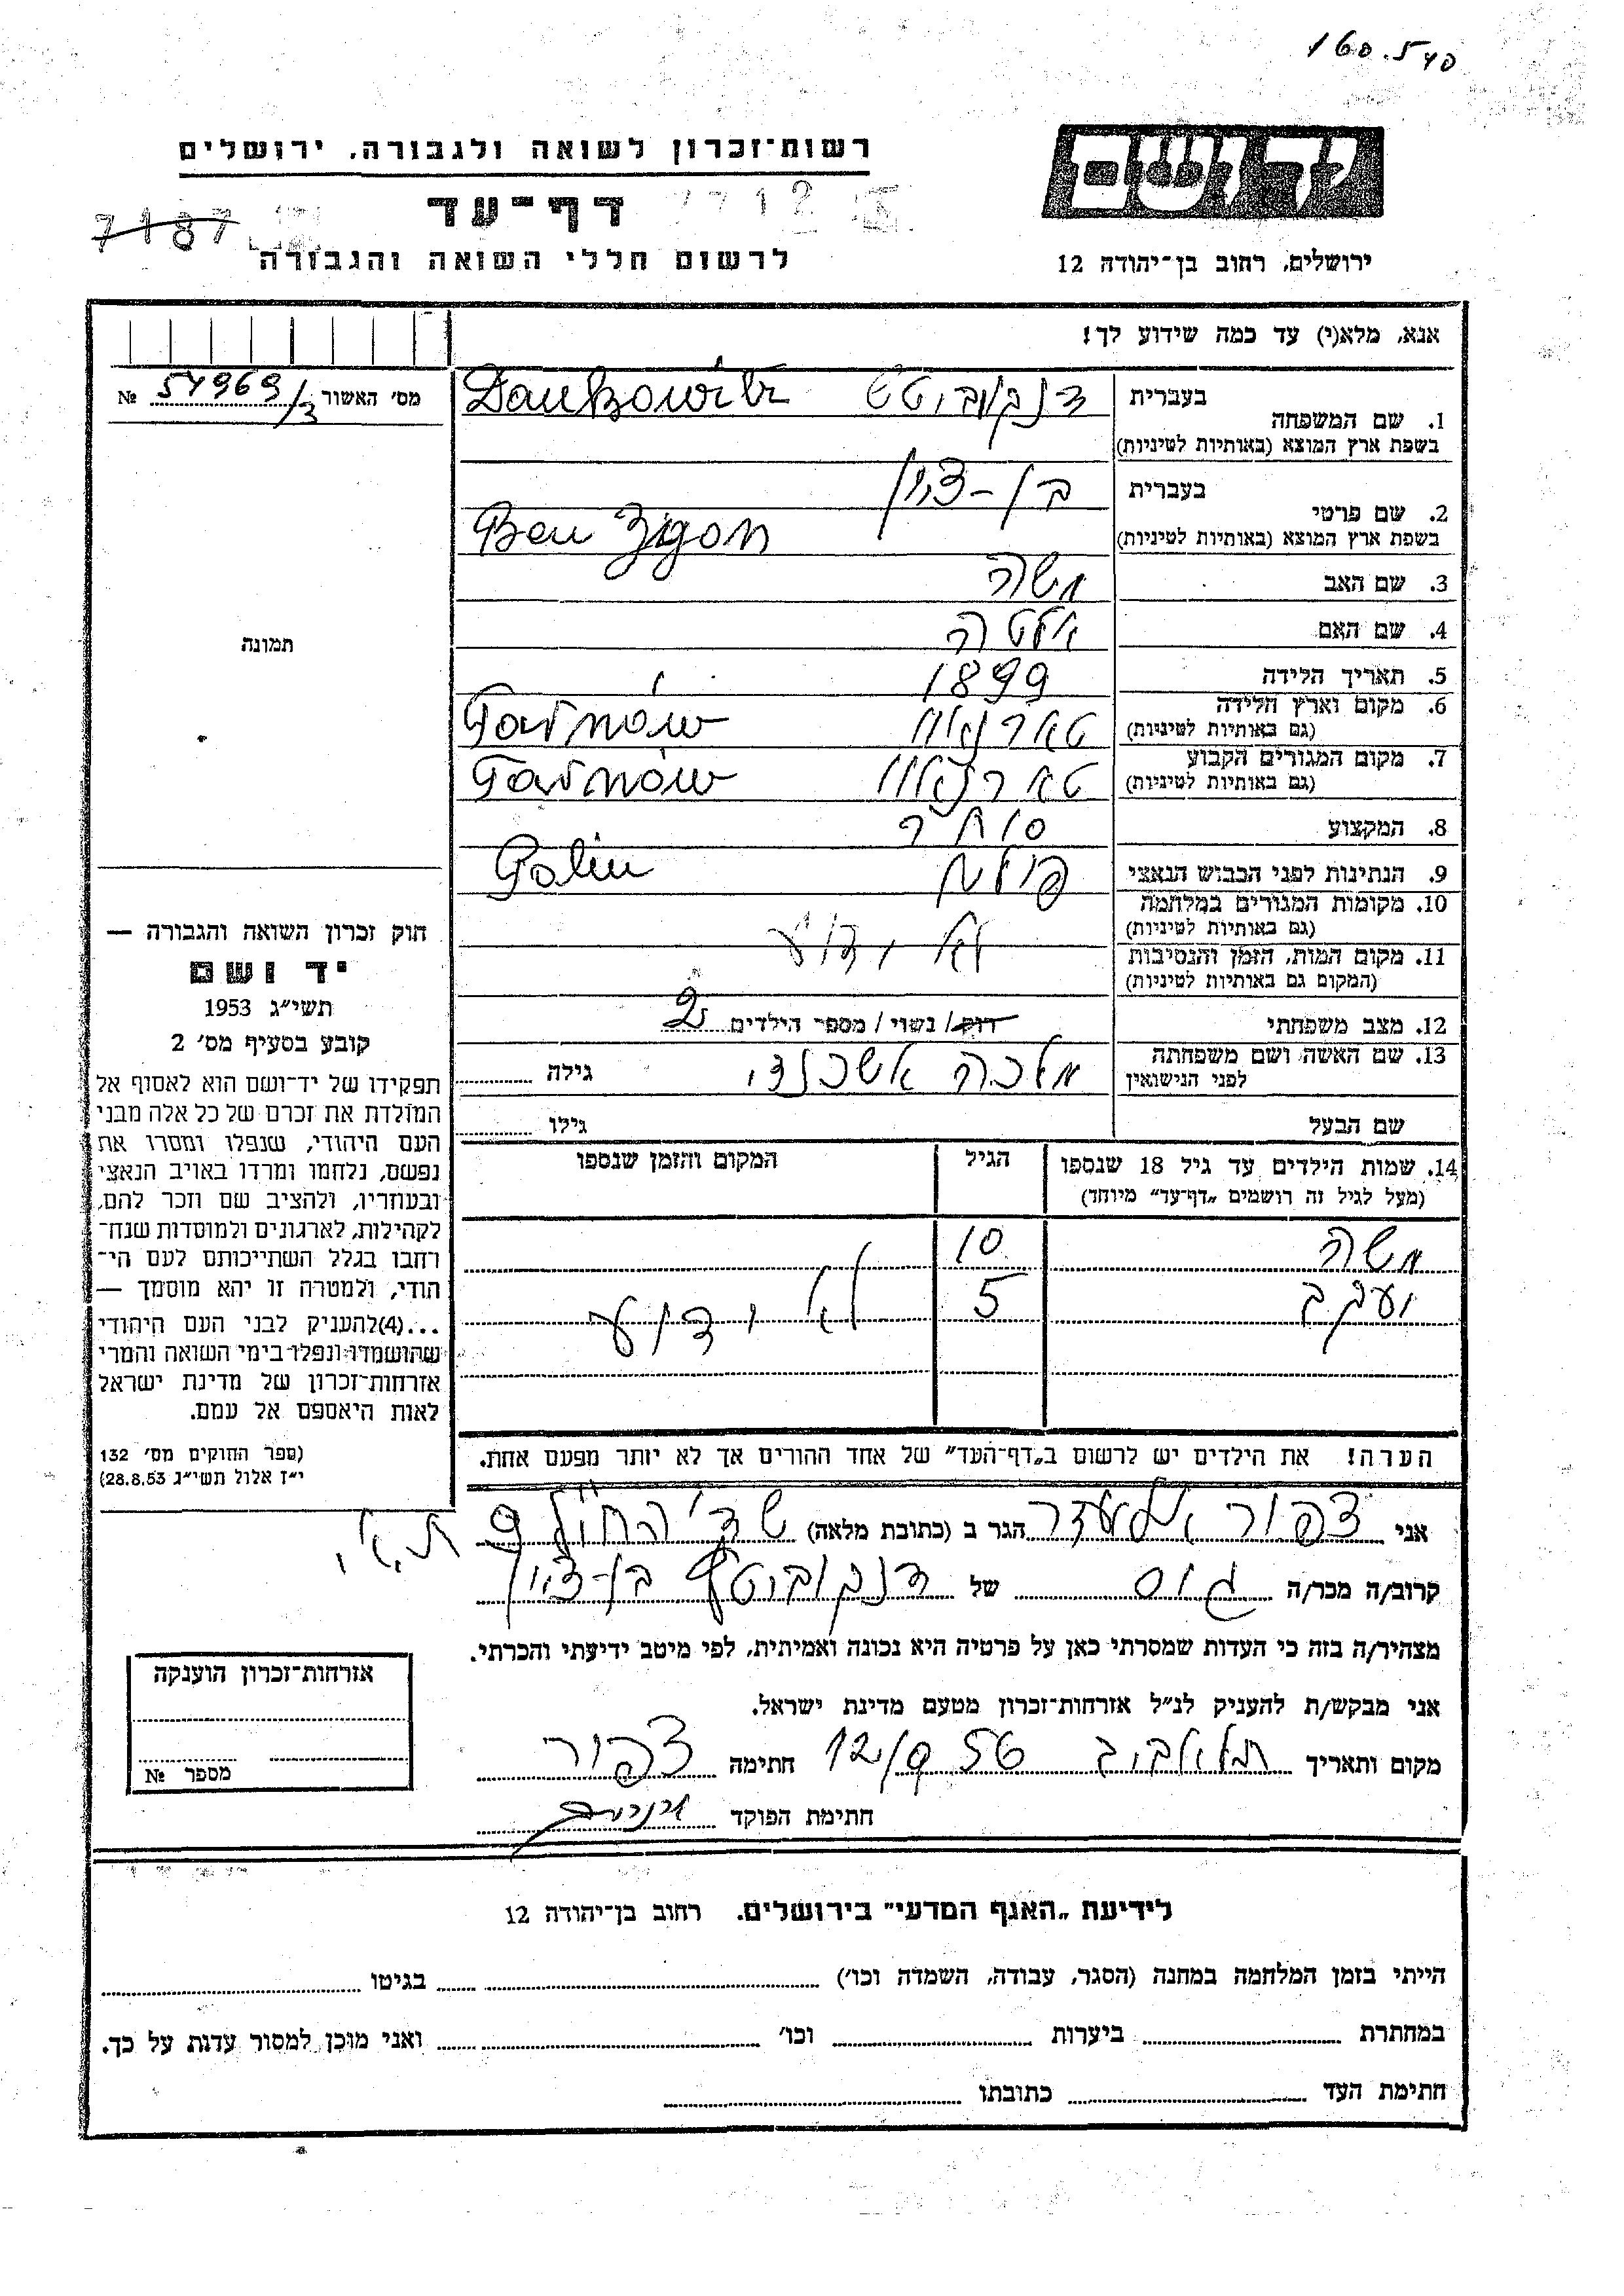 160.540
רשות־זכרון לשואה ולגבורה, ירושלים
יד ושם
דף־עד
7712
7187
לרשום חללי השואה והגבורה
ירושלים, רחוב בן־יהודה 12
אנא, מלא(י) עד כמה שידוע לך!
מס׳ האשור 54969/3 №
1. שם המשפחה בעברית דנקוביטש Dankowitz
בשפת ארץ המוצא (באותיות לטיניות)
2. שם פרטי בעברית בן-ציון
בשפת ארץ המוצא (באותיות לטיניות) Ben Zigon
3. שם האב משה
4. שם האם אלטה
תמונה
5. תאריך הלידה 1899
6. מקום וארץ הלידה טארנאוו Tarnów
(גם באותיות לטיניות)
7. מקום המגורים הקבוע טארנאוו Tarnów
(גם באותיות לטיניות)
8. המקצוע סוחר
9. הנתינות לפני הכבוש הנאצי פולין Polin
10. מקומות המגורים במלחמה
(גם באותיות לטיניות) לא ידוע
11. מקום המות, הזמן והנסיבות
(המקום גם באותיות לטיניות)
12. מצב משפחתי רווק/ נשוי/ מספר הילדים 2
13. שם האשה ושם משפחתה מלכה אשכנזי גילה
לפני הנישואין
שם הבעל גילו
14. שמות הילדים עד גיל 18 שנספו הגיל המקום והזמן שנספו
(מעל לגיל זה רושמים „דף־עד״ מיוחד)
משה 10
יעקב 5 לא ידוע
הערה! את הילדים יש לרשום ב„דף־העד״ של אחד ההורים אך לא יותר מפעם אחת.
חוק זכרון השואה והגבורה —
יד ושם
תשי״ג 1953
קובע בסעיף מס׳ 2
תפקידו של יד־ושם הוא לאסוף אל
המולדת את זכרם של כל אלה מבני
העם היהודי, שנפלו ומסרו את
נפשם, נלחמו ומרדו באויב הנאצי
ובעוזריו, ולהציב שם וזכר להם,
לקהילות, לארגונים ולמוסדות שנח־
רחבו בגלל השתייכותם לעם הי־
הודי, ולמטרה זו יהא מוסמך —
...(4)להעניק לבני העם היהודי
שהושמדו ונפלו בימי השואה והמרי
אזרחות־זכרון של מדינת ישראל
לאות היאספם אל עמם.
(ספר החוקים מס׳ 132
י״ז אלול תשי״ג 28.8.53)
אני צפור הגר ב (כתובת מלאה) ת.א.
קרוב/ה מכר/ה גיס של דנקוביטש בן-ציון
מצהיר/ה בזה כי העדות שמסרתי כאן על פרטיה היא נכונה ואמיתית, לפי מיטב ידיעתי והכרתי.
אני מבקש/ת להעניק לנ״ל אזרחות־זכרון מטעם מדינת ישראל.
מקום ותאריך תל אביב 12/9 56 חתימה צפור
חתימת הפוקד
אזרחות־זכרון הוענקה
מספר №
לידיעת „האגף המדעי״ בירושלים. רחוב בן־יהודה 12
הייתי בזמן המלחמה במחנה (הסגר, עבודה, השמדה וכו׳) בגיטו
במחתרת ביערות וכו׳ ואני מוכן למסור עדות על כך.
חתימת העד כתובתו